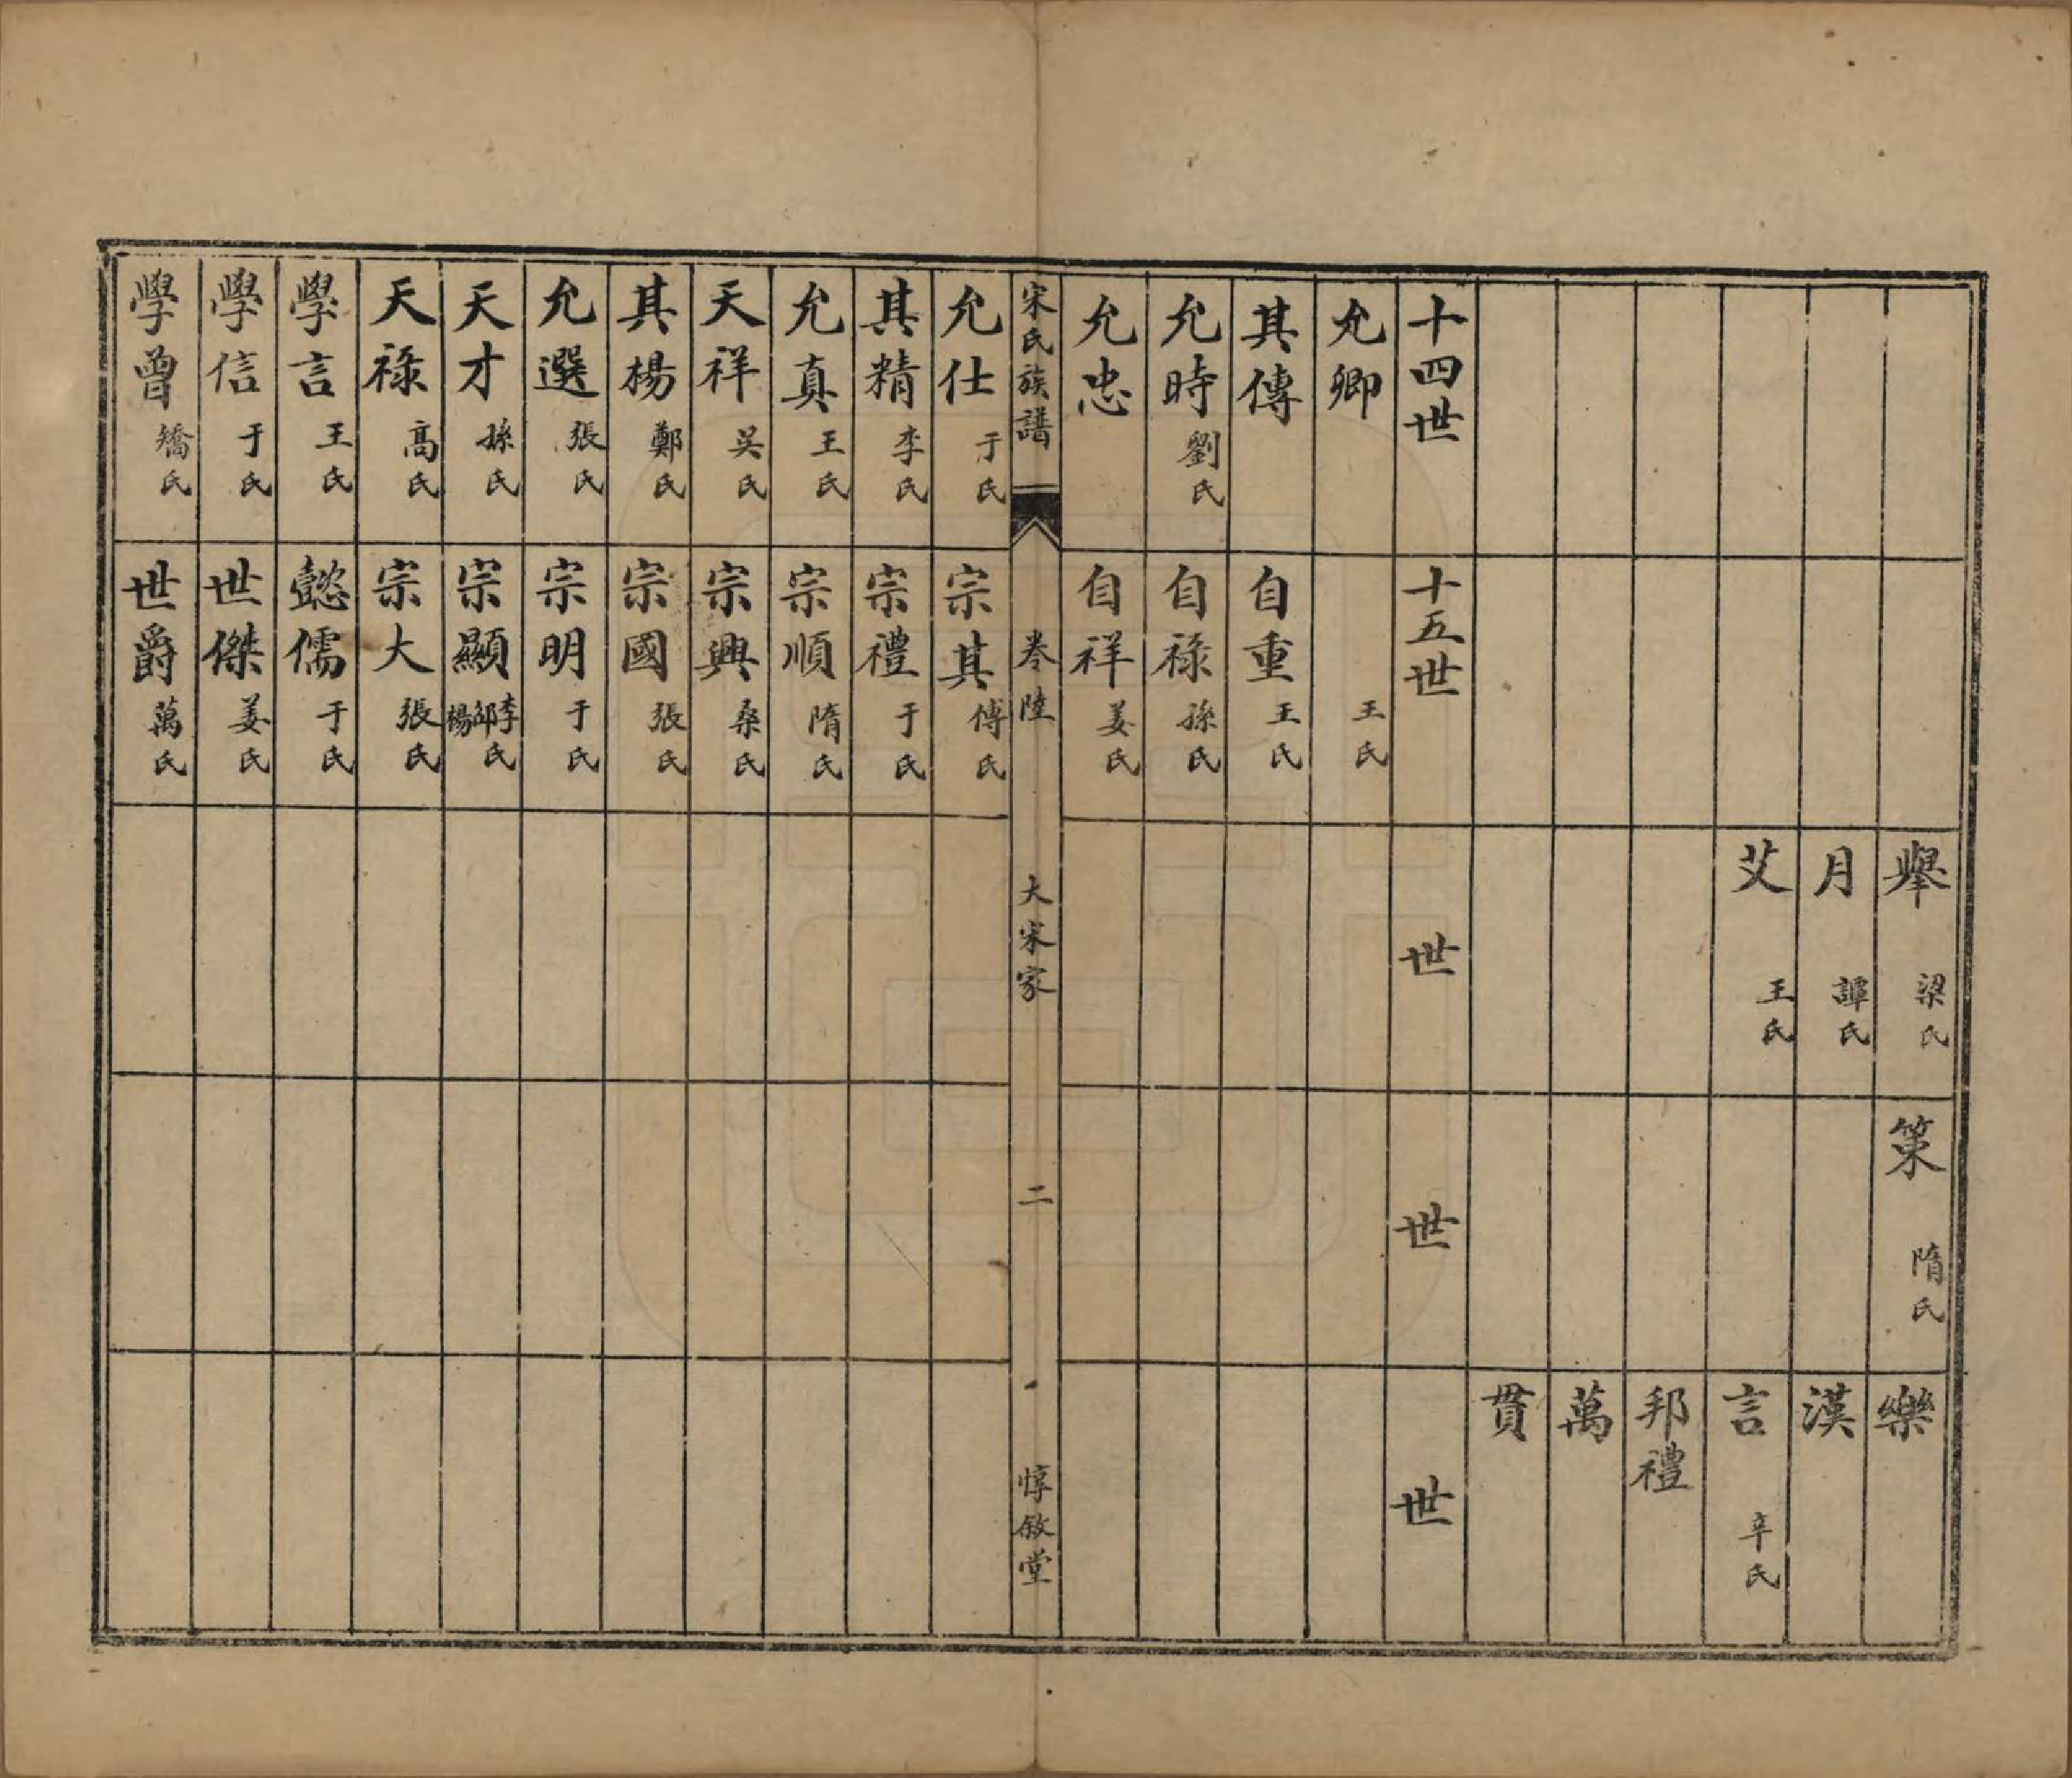 舉 梁氏
策 隋氏
樂
月 譚氏
漢
艾 王氏
言 辛氏
邦禮
萬
貫
十四世
十五世
世
世
世
允卿
王氏
其傳
自重 王氏
允時 劉氏
自祿 孫氏
允忠
自祥 姜氏
宋氏族譜 卷陸 大宋家 二 惇敘堂
允仕 于氏
宗其 傅氏
其精 李氏
宗禮 于氏
允真 王氏
宗順 隋氏
天祥 吴氏
宗興 桑氏
其楊 鄭氏
宗國 張氏
允選 張氏
宗明 于氏
天才 孫氏
宗顯 李邹楊氏
天祿 高氏
宗大 張氏
學言 王氏
懿儒 于氏
學信 于氏
世傑 姜氏
學曾 矯氏
世爵 萬氏